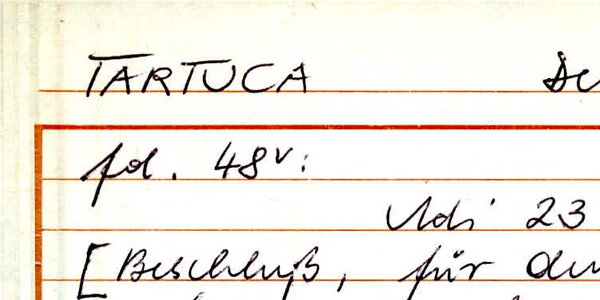 TARTUCA
fol. 48v:
Adi 23
[Beschluß, für den